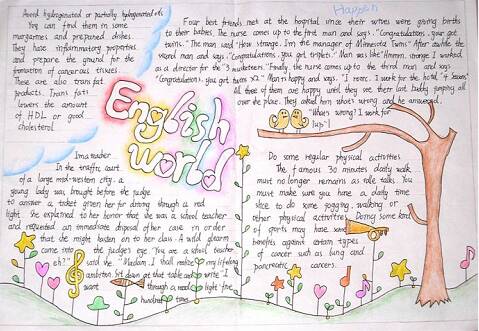 Avoid hydrogenated or partially hydrogenated oils
You can find them in some
margarines and prepared dishes.
They have inflammatory properties
and prepare the ground for the
formation of cancerous tissues.
These are also trans fat
products. Trans fats
lowers the amount
of HDL or good
cholesterol
Happen
Four best friends met at the hospital since their wives were giving births
to their babies. The nurse comes up to the first man and says, "Congratulations, your got
twins." The man said "How strange, I'm the manager of Minnesota Twins." After awhile the
second man and says, "Congratulations, you got triplets." Man was like "Hmmm, strange I worked
as a director for the "3 musketeers." Finally, the nurse comes up to the third man and says
"Congratulations, you got twins x2." Man is happy and says, "I work for the hotel "4 Seasons"
All three of them are happy until they see their last Buddy jumping all
over the place. They asked him what's wrong and he answered,
"What's wrong? I work for
7up"!
English
world
I'm a teacher
In the traffic court
of a large mid-western city, a
young lady was brought before the judge
to answer a ticket given her for driving through a red
light. She explained to her honor that she was a school teacher
and requested an immediate disposal of her case in order
that she might hasten on to her class. A wild gleam
came into the judge's eye. "You are a school teacher,
eh?" said he. "Madam, I shall realize my lifelong
ambition. Sit down at that table and write 'I
went through a red light' five
hundred times
Do some regular physical activities
The famous 30 minutes daily walk
must no longer remains as role talks. You
must make sure you have a daily time
slice to do some jogging, walking or
other physical activities. Doing some kind
of sports may have some
benefits against certain types
of cancer such as lung and
pancreatic cancers.